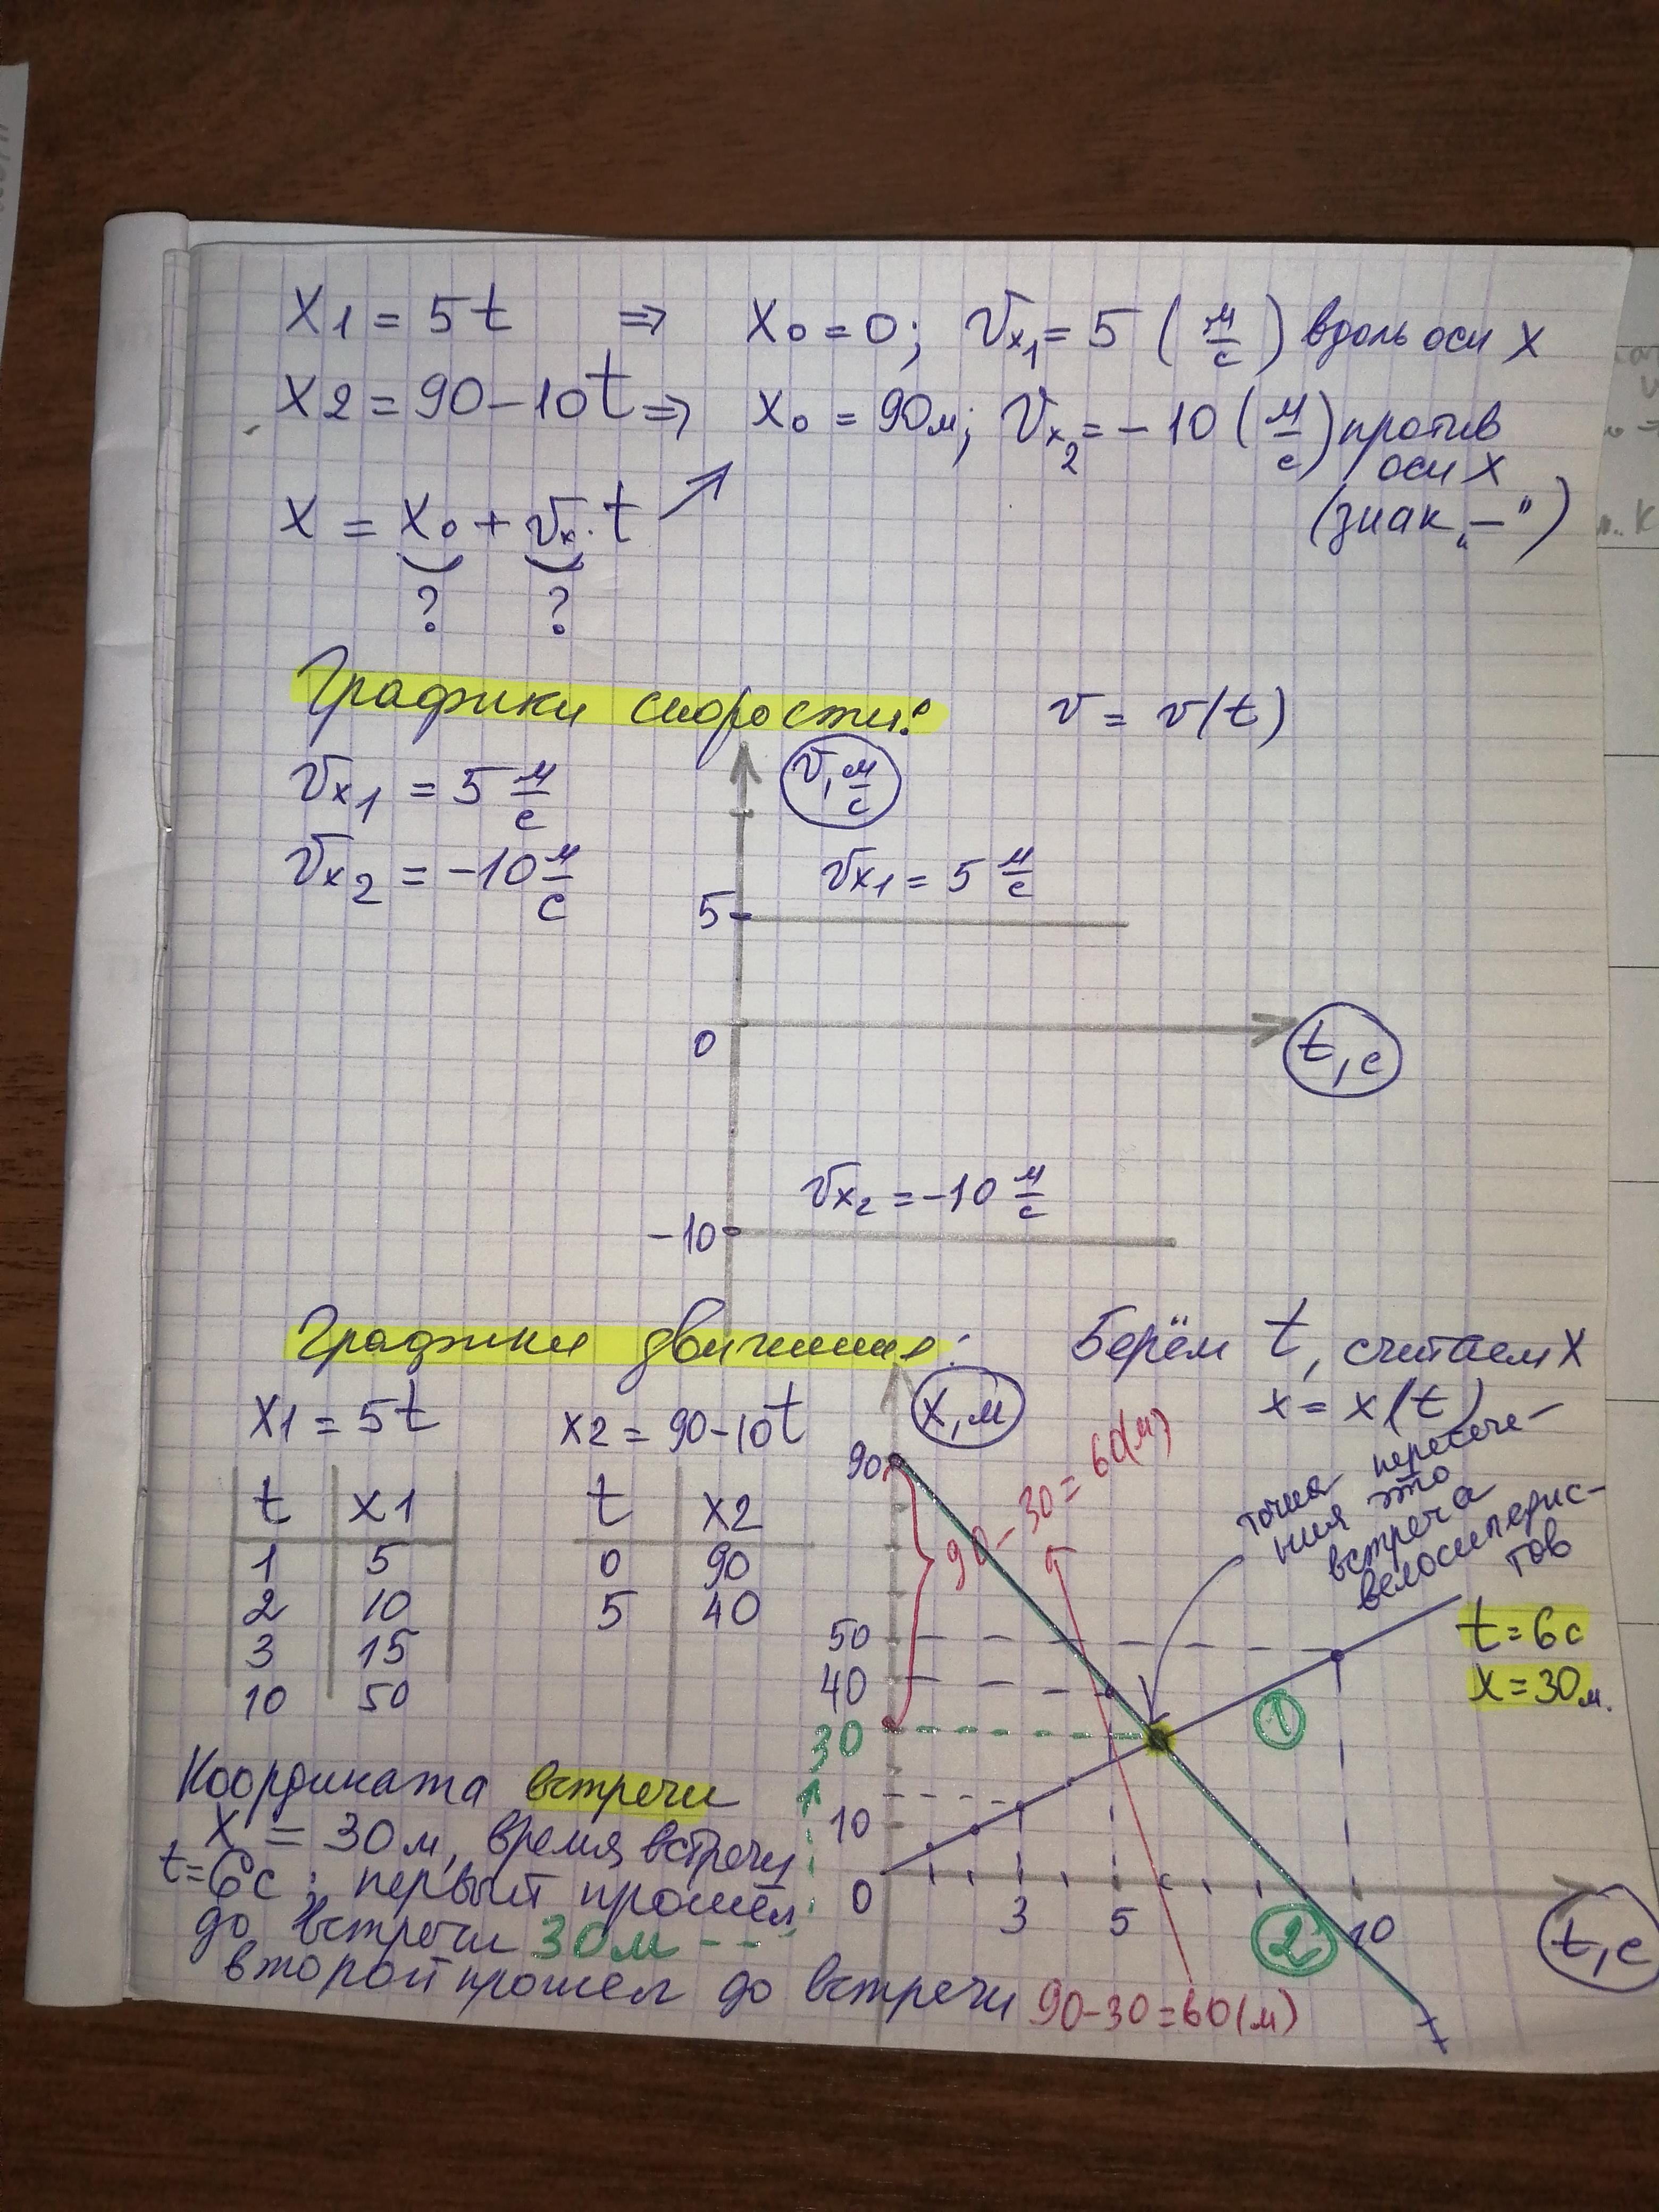 x1 = 5t ⇒ x0 = 0; Vx1 = 5 (м/с) вдоль оси x
x2 = 90 - 10t ⇒ x0 = 90м; Vx2 = -10 (м/с) против
оси x
(знак „—")
x = x0 + Vx · t
? ?
Графики скорости: v = v(t)
Vx1 = 5 м/с
Vx2 = -10 м/с
v, м/с
Vx1 = 5 м/с
5
0
t, с
Vx2 = -10 м/с
-10
Графики движения: Берём t, считаем x
x = x(t)
x1 = 5t
t x1
1 5
2 10
3 15
10 50
x2 = 90 - 10t
t x2
0 90
5 40
x, м
90
90 - 30 = 60(м)
точка пересече-
ния это
встреча
велосипедис-
тов
t = 6с
x = 30м.
50
40
30
10
0
3 5 10
t, с
1
2
Координата встречи
x = 30м, время встречи
t = 6с; первый прошёл
до встречи 30м
второй прошёл до встречи 90-30=60(м)